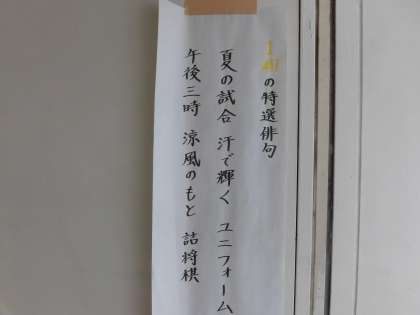 の特選俳句
夏の試合 汗で輝く ユニフォーム
午後三時 涼風のもと 詰将棋